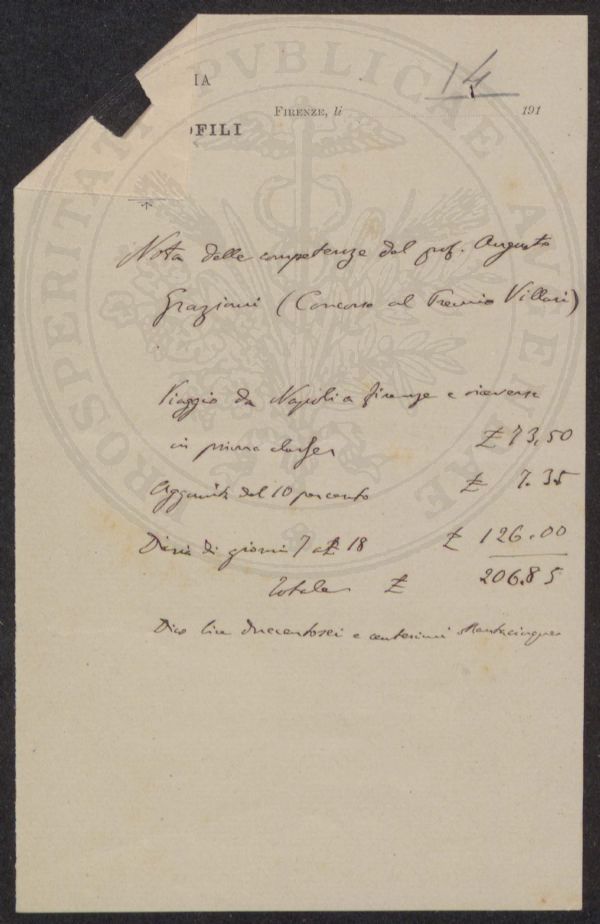 IA
14
FIRENZE, li 191
OFILI
PROSPERITATI PVBLICAE AVGENDAE
Nota delle competenze del prof. Augusto
Graziani (Concorso al Premio Villari)
Viaggio da Napoli a Firenze e viceversa
in prima classe £ 73,50
Aggiunta del 10 per cento £ 7.35
Diaria di giorni 7 a £ 18 £ 126.00
Totale £ 206.85
Dico lire duecentosei e centesimi ottantacinque